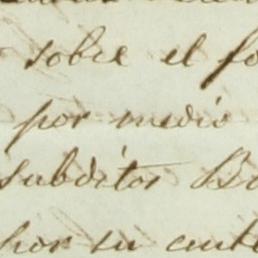 sobre el fo
por medio
subditos B
por su cuent